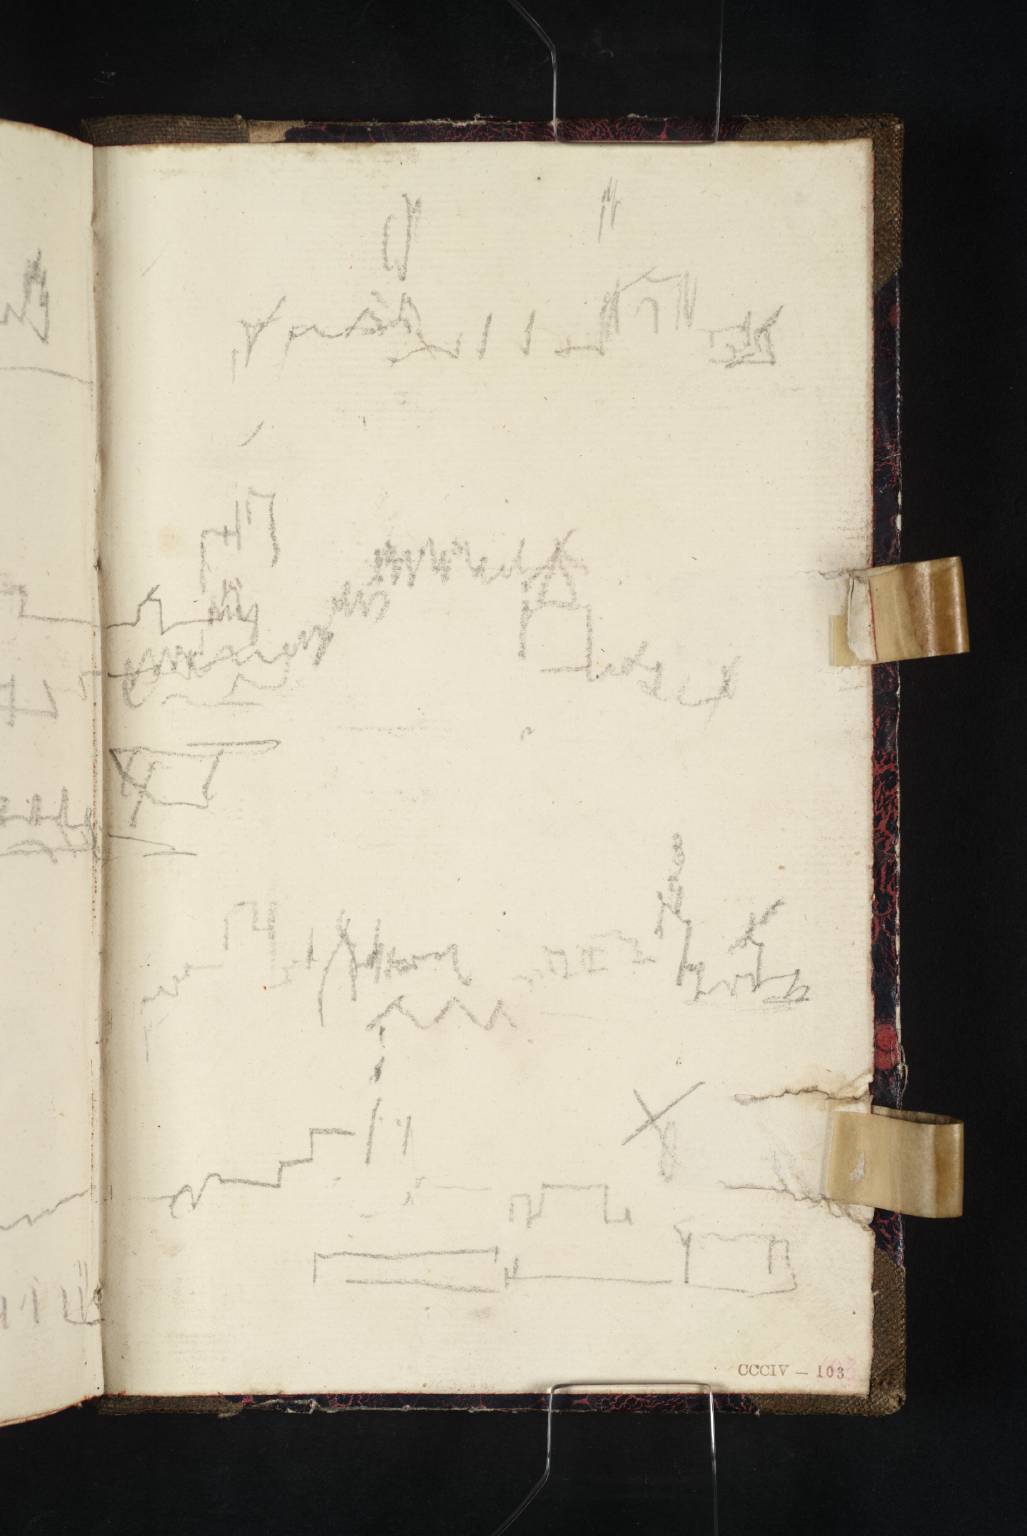 CCCIV – 103